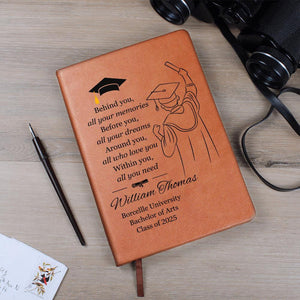 Behind you,
all your memories
Before you,
all your dreams
Around you,
all who love you
Within you,
all you need
William Thomas
Borcelle University
Bachelor of Arts
Class of 2025